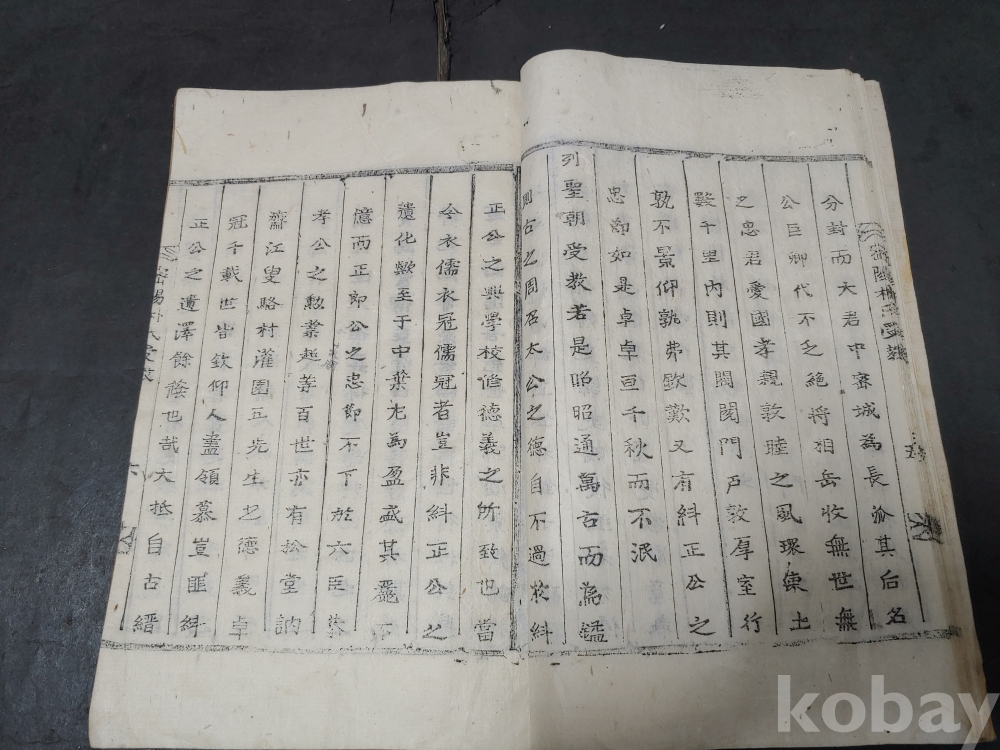 分封而大君中密城為長派其后名
公巨卿代不乏絶將相岳收無世無
之忠君愛國孝親敦睦之風環東土
數千里內則其閥閱門戶敦厚室行
孰不景仰孰弗歆歎又有糾正公之
忠節如是卓卓亘千秋而不泯
列聖朝受教若是昭昭通萬古而為鑑
則古之周石太公之德自不過於糾
正公之興學校修德義之所致也當
今衣儒衣冠儒冠者豈非糾正公之
遺化歟至于中葉尤為盈盛其麗不
億而正郎公之忠節不下於六臣恭
孝公之勲業超等百世亦有松堂訥
齋江叟駱村灌園五先生之德義卓
冠千載世皆欽仰人盡領慕豈匪糾
正公之遺澤餘蔭也哉大抵自古縉
密陽朴氏受教
六
kobay